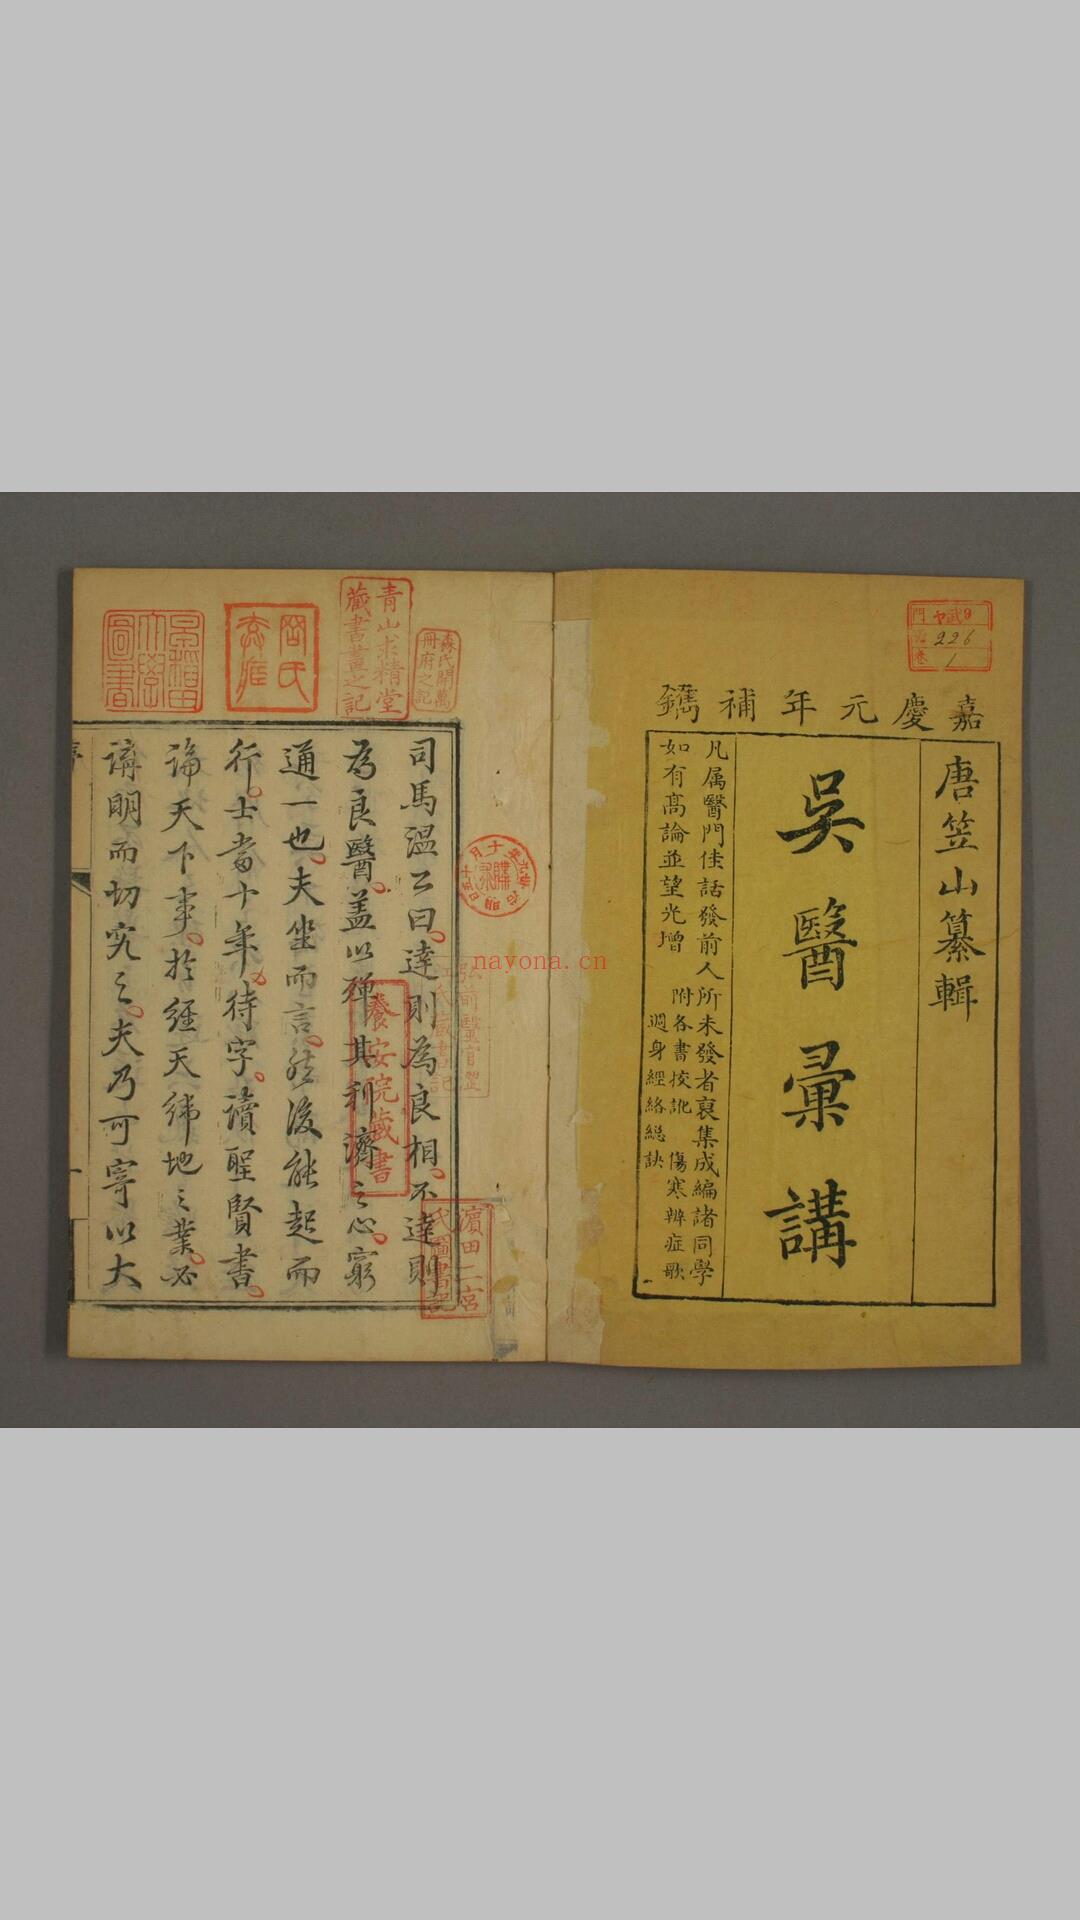 嘉慶元年補鐫
唐笠山纂輯
吳醫彙講
凡属醫門佳話發前人所未發者裒集成編諸同學
如有髙論並望光增
附各書校訛 傷寒辨症歌
週身經絡總訣
門ヤ9
226
卷1
司馬温公曰達則為良相不達則
為良醫蓋以殫其利濟之心窮
通一也夫坐而言然後能起而
行士當十年待字讀聖賢書
論天下事於經天緯地之業必
講明而切究之夫乃可寄以大
序
森氏開萬
冊府之記
青山求精堂
藏書畫之記
養安院藏書
弘前醫官澀
江氏藏書記
濵田二宮
氏圖書記
nayona.cn